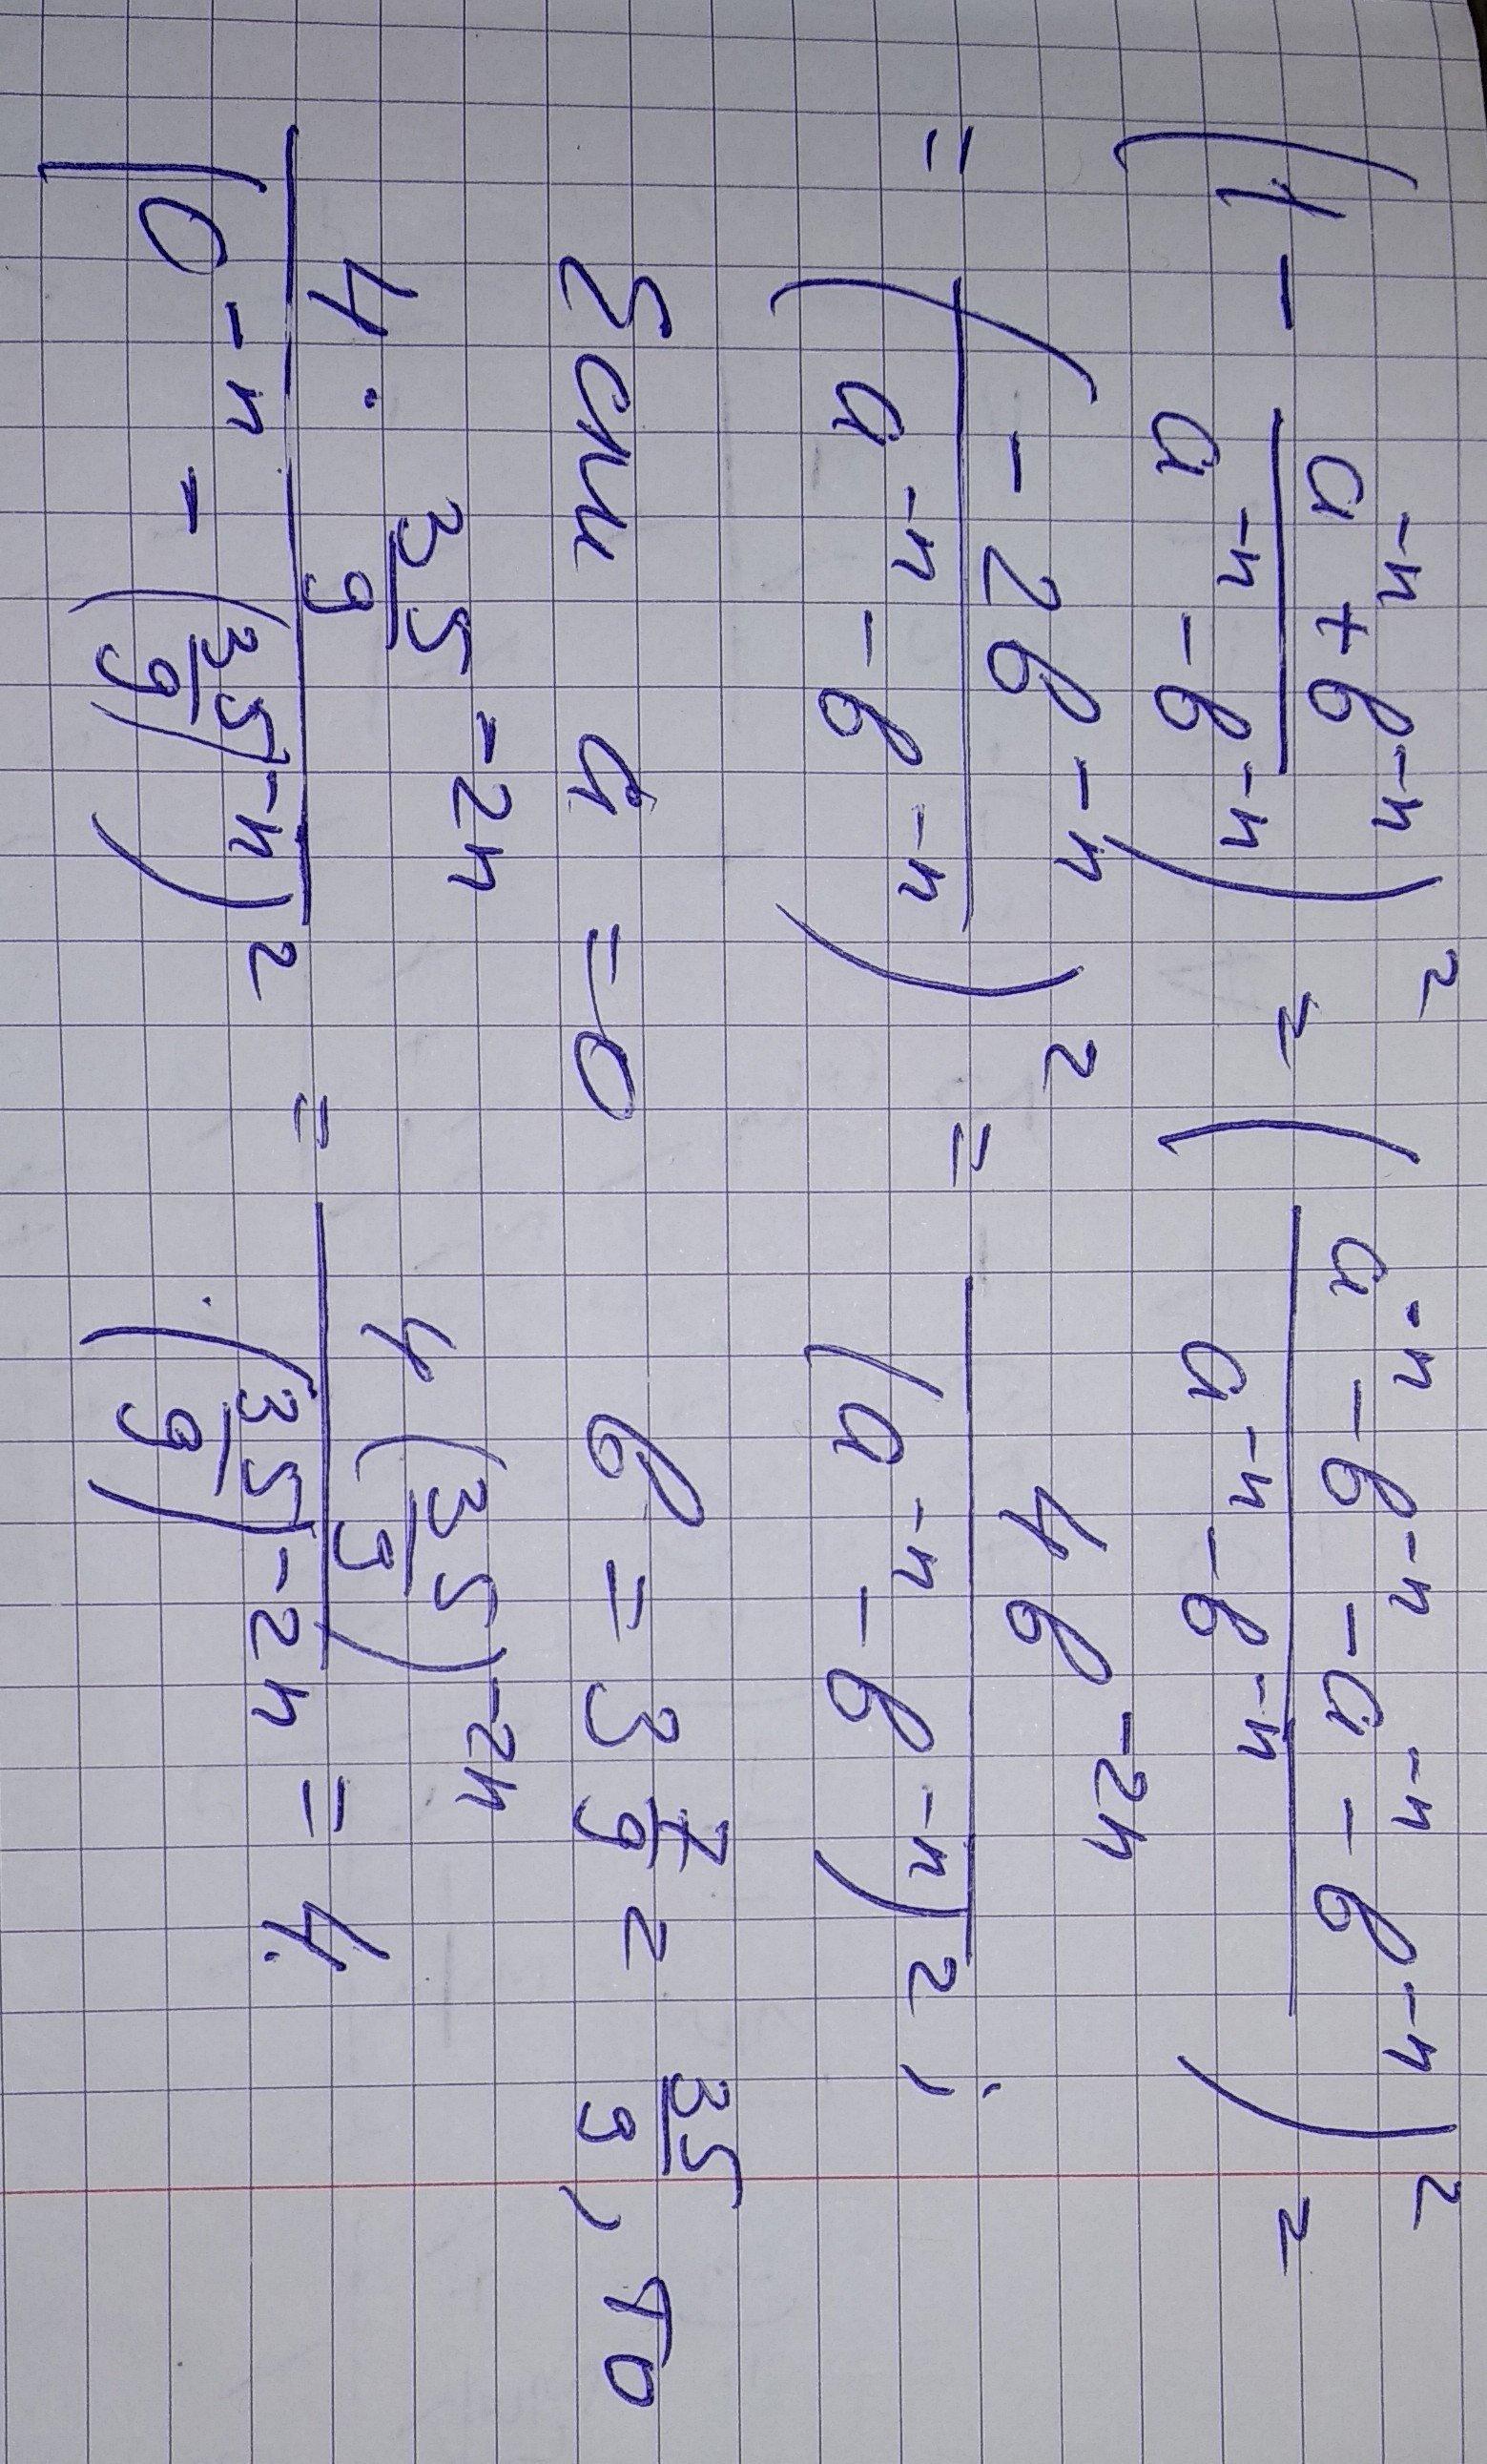 (1 - (a^{-n} + b^{-n})/(a^{-n} - b^{-n}))^2 = ((a^{-n} - b^{-n} - a^{-n} - b^{-n})/(a^{-n} - b^{-n}))^2 =
= ((-2b^{-n})/(a^{-n} - b^{-n}))^2 = (4b^{-2n})/(a^{-n} - b^{-n})^2;
Если a = 0 b = 3 7/9 = 35/9, то
(4 · 35/9^{-2n})/(0^{-n} - (35/9)^{-n})^2 = (4(35/9)^{-2n})/(35/9)^{-2n} = 4.